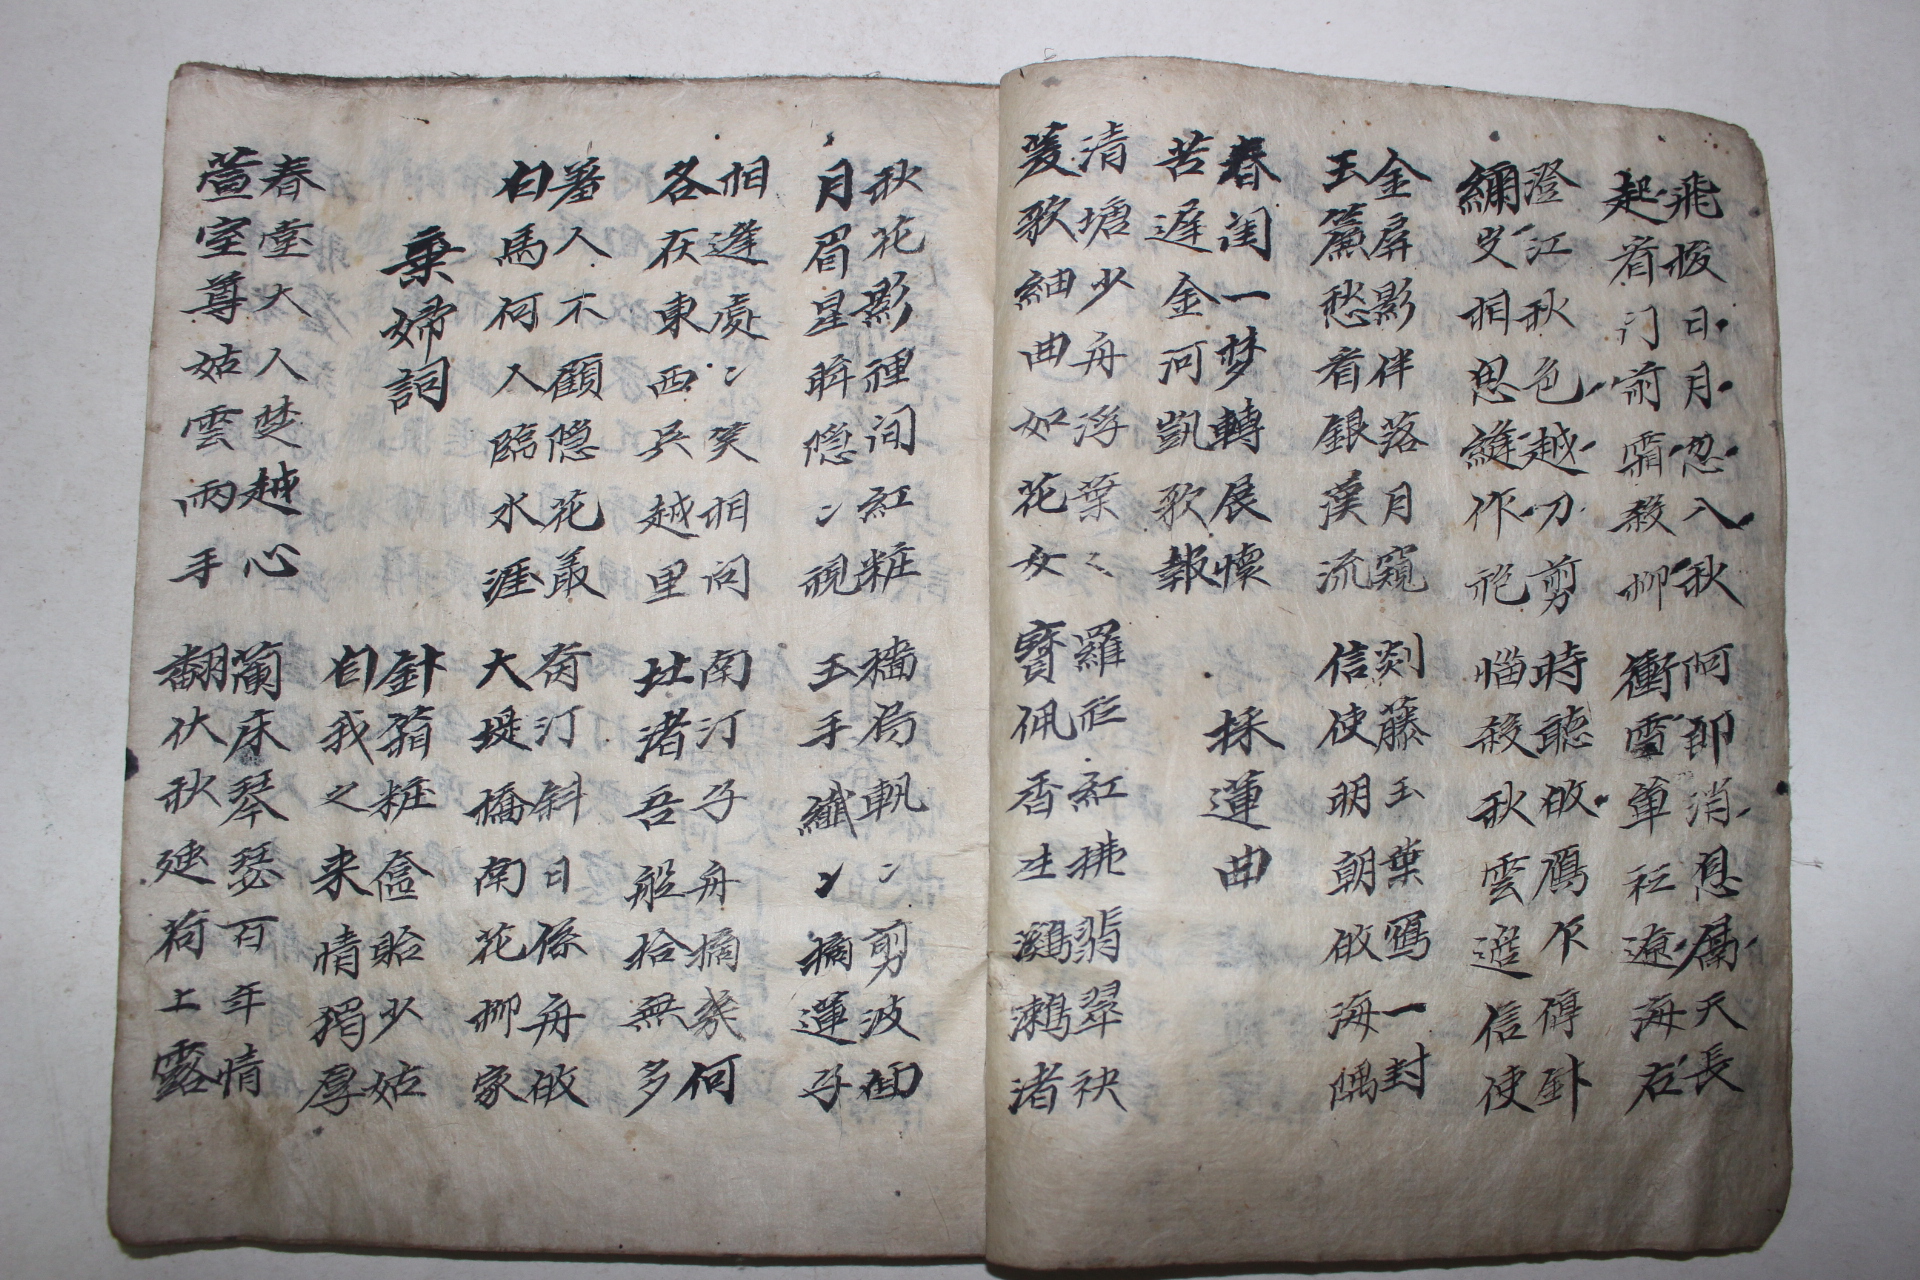 飛梭日月忽八秋
起看门前霜殺柳
阿郎消息屬天長
衝雪単衫遼海右
澄江秋色越刀剪
相思縫作袍
時聽鴈下傳
惱殺秋雲遲信使
金屏影伴落月窺
玉簾愁看銀漢流
剡藤玉葉寫一封
信使明朝啟海隅
春闺一梦轉展懷
苦遲金河凱歌報
採蓮曲
清塘少舟浮葉〻
菱歌細曲如花女
羅衫紅拂翡翠袂
寶佩香生鸂鶒渚
秋花影裡闻紅粧
月眉星眸隱〻視
檣局軋〻剪波回
玉手纖〻摘蓮子
相逢處〻笑相问
各在東西吳越里
南汀子舟摘幾何
北渚吾船拾無多
羞人不顧隱花叢
白馬何人臨水涯
荷汀斜日係舟啟
大堤橋南花柳家
棄婦詞
針箱粧奩貽少姑
自我之来情猶厚
春臺大人楚越心
萱室尊姑雲雨手
蘭床琴瑟百年情
翻作秋蓮荷上露